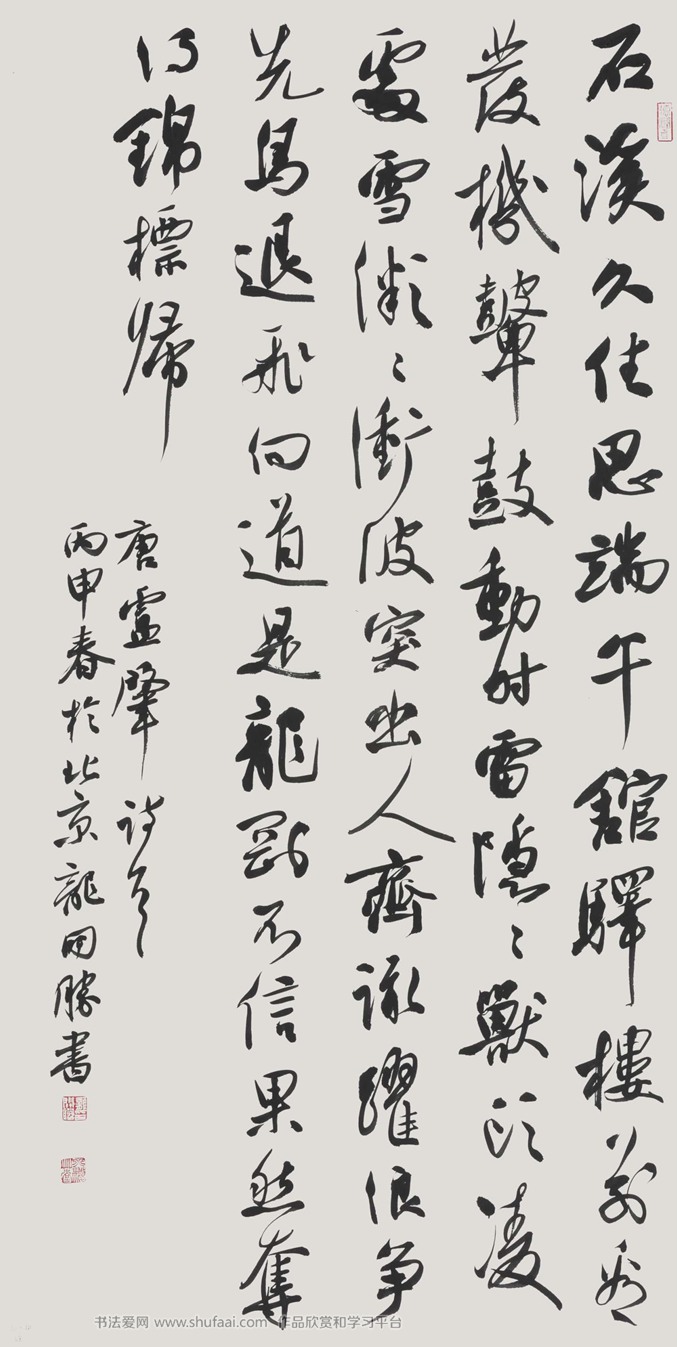 石溪久住思端午館驛樓前看
發機鼙鼓動時雷隱〻獸頭凌
處雪微〻衝波突出人齊譀躍浪争
先鳥退飛向道是龍剛不信果然奪
得錦標歸
唐盧肇詩一首
丙申春於北京龍開勝書
书法爱网 www.shufaai.com 作品欣赏和学习平台